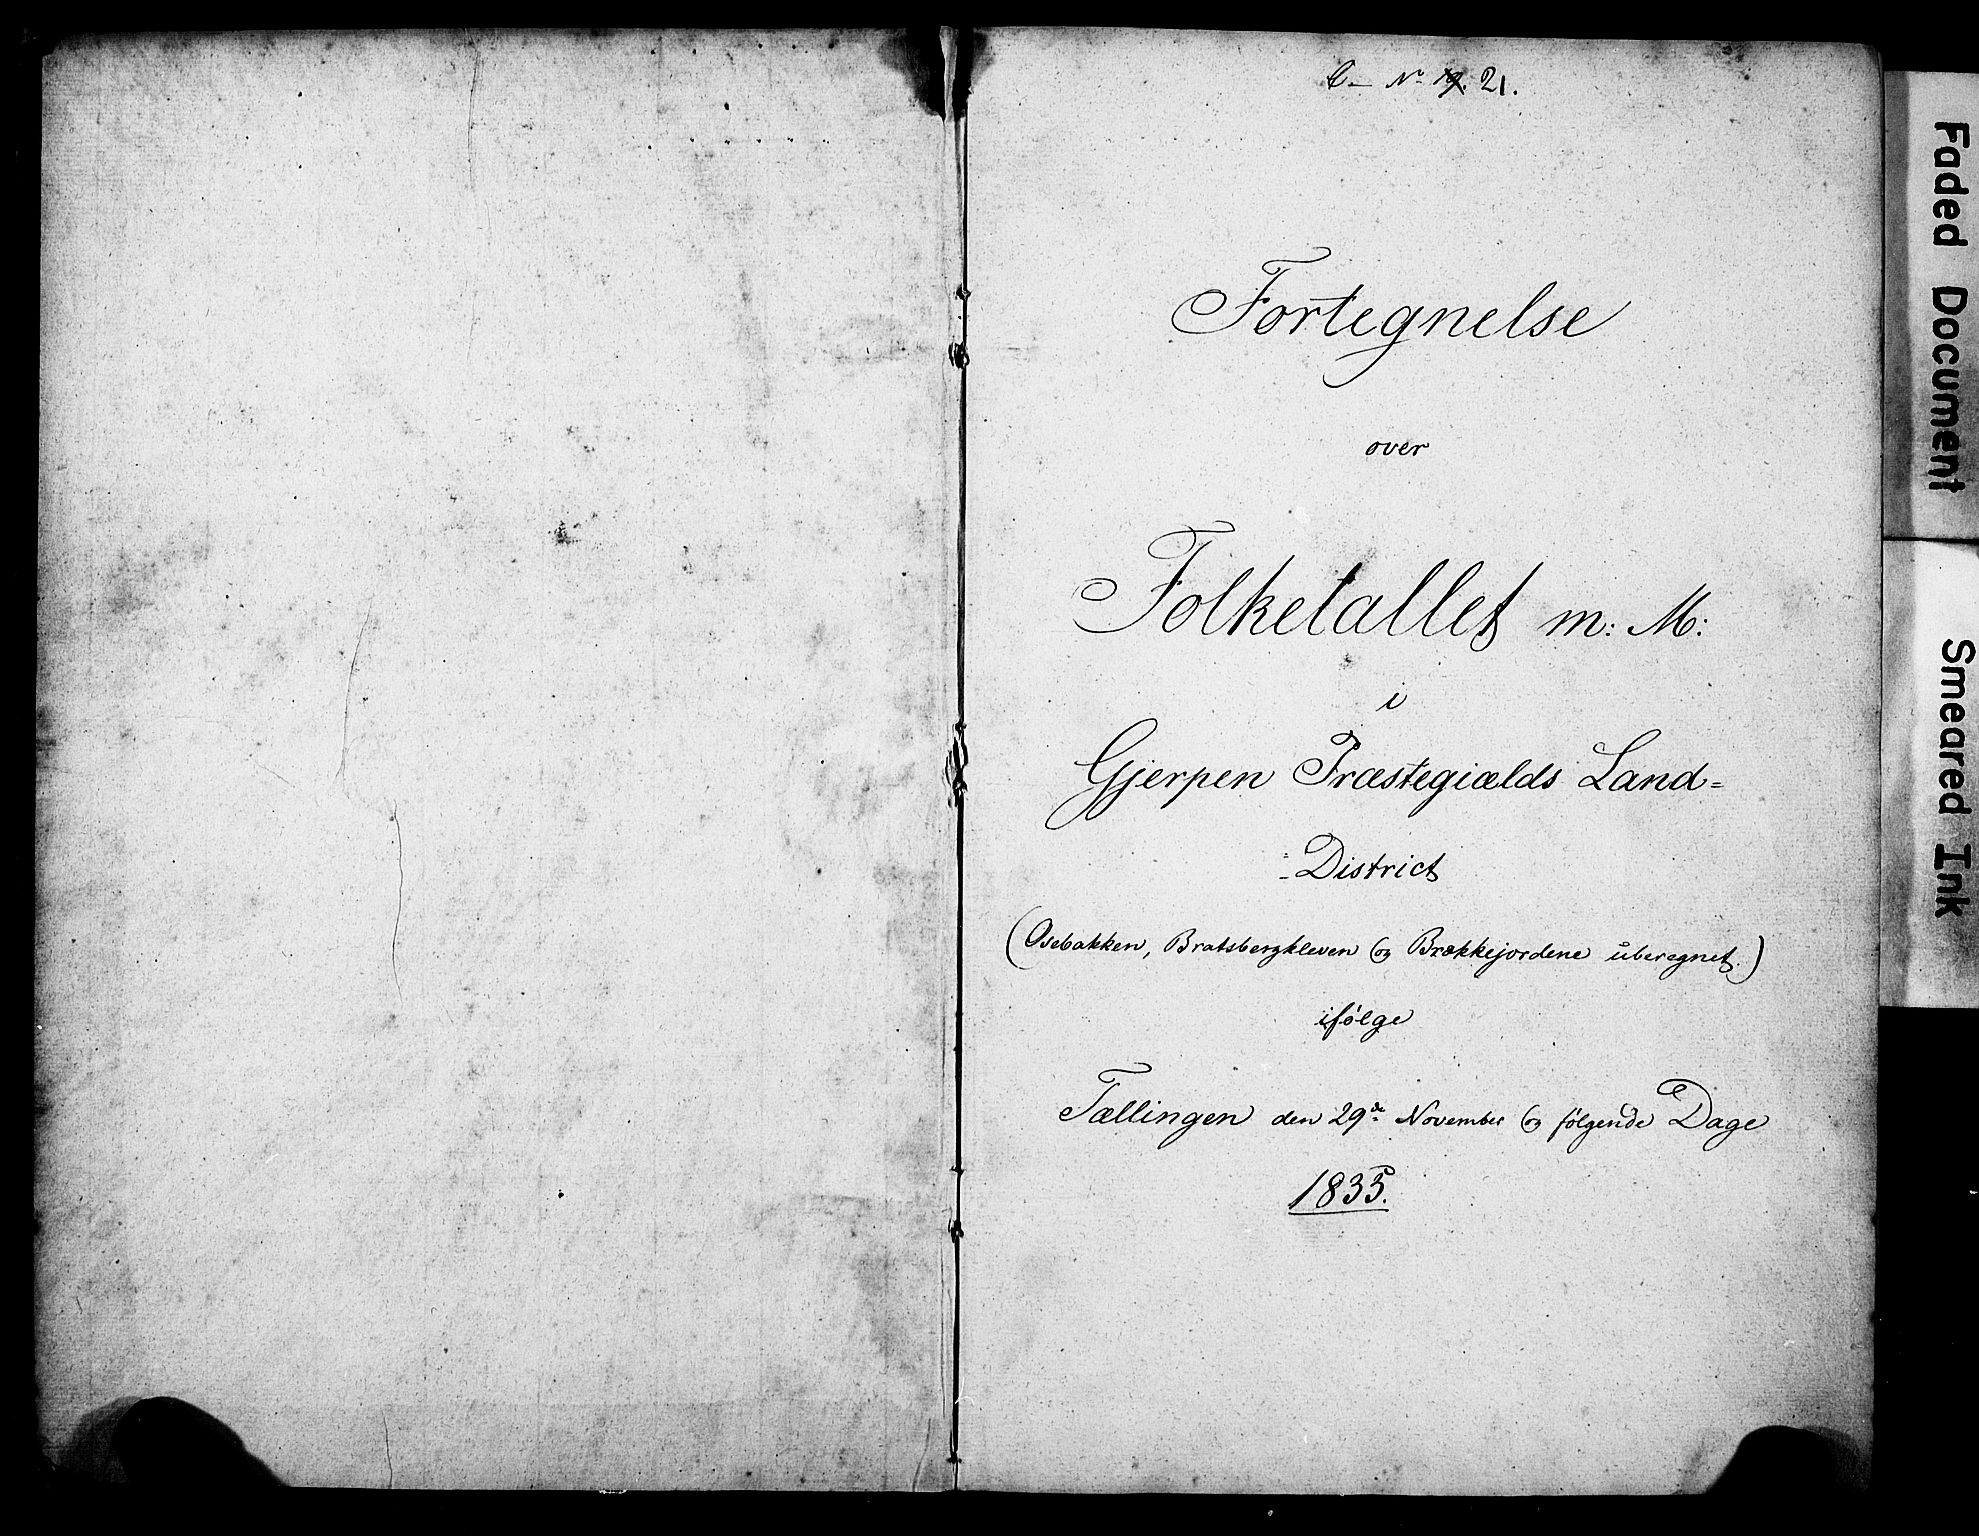 C – No 19. 21.
Fortegnelse
over
Folketallet m: M:
i
Gjerpen Præstegiælds Land=
=District
(Osebakken, Bratsbergkleven og Brækkejordene uberegnet.)
ifølge
Tællingen den 29de November og følgende Dage
1835.
Faded Document
Smeared Ink